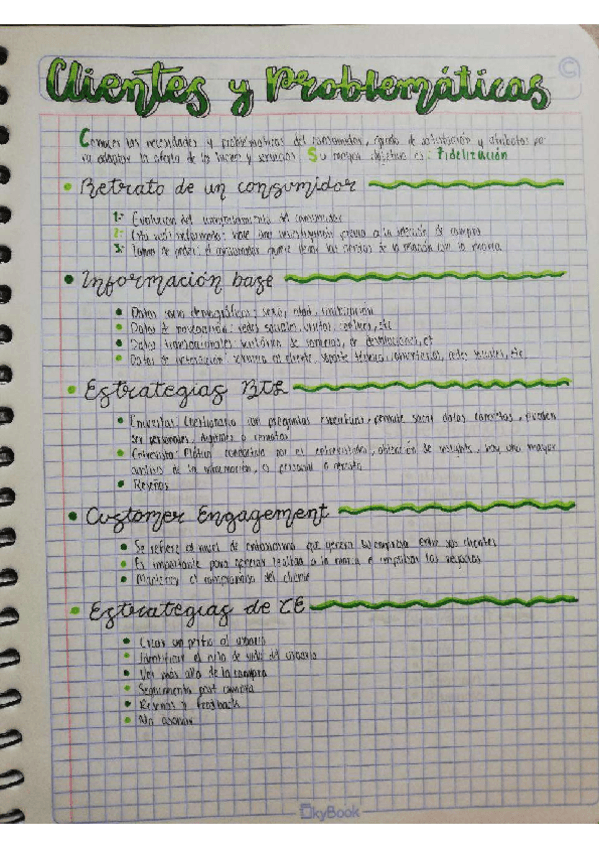 Clientes y Problemáticas
Conocer las necesidades y problemáticas del consumidor, grado de satisfacción y atributos pa-
ra adaptar la oferta de los bienes y servicios. Su mayor objetivo es: Fidelización
Retrato de un consumidor
1: Evolución del comportamiento del consumidor
2: Está informado: hace una investigación previa a la decisión de compra
3: poder: el consumidor quiere tener las de la relación con la marca
Información base
Datos socio demográficos: sexo, edad,
Datos de navegación: redes sociales, visitas, enlaces, etc
Datos transaccionales: histórico de de devoluciones, et
Datos de interacción: al cliente, soporte técnico, comentarios, redes sociales, etc.
Estrategias
Encuestas: Cuestionario con preguntas permite sacar datos concretos, pueden
ser personales, digitales o remotas
Entrevista: Plática por el entrevistador, obtención de insights, hay una mayor
análisis de la información, es personal o remota
Reseñas
Customer Engagement
Se refiere al nivel de entusiasmo que genera tu empresa entre sus clientes
Es importante para generar lealtad a la marca e impulsar los negocios
Mantener el del cliente
Estrategias de CE
Crear un perfil al usuario
Identificar el ciclo de vida del usuario
Ver más allá de la compra
Seguimiento post
Reseñas y Feedback
No
SkyBook